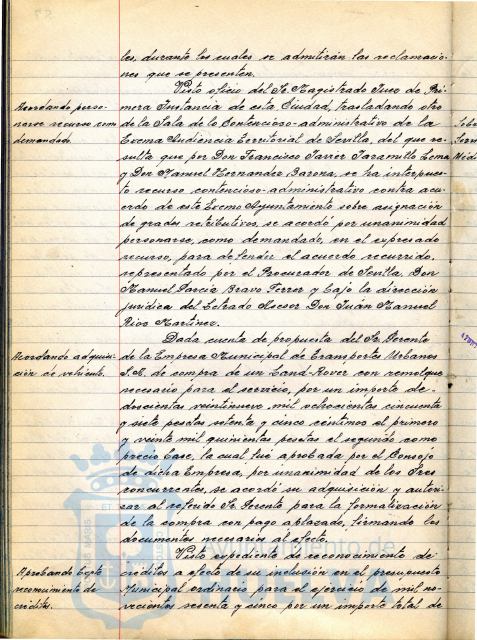 les, durante los cuales se admitirán las reclamacio-
nes que se presenten.
Visto oficio del Sr. Magistrado Juez de Pri-
Acordando perso-
narse recurso como
demandado.
mera Instancia de esta Ciudad, trasladando otro
de la Sala de lo Contencioso-administrativo de la
Excma Audiencia Territorial de Sevilla, del que re-
sulta que por Don Francisco Javier Jaramillo Lema
y Don Manuel Hernandez Barona, se ha interpues-
to recurso contencioso-administrativo contra acu-
erdo de este Excmo Ayuntamiento sobre asignación
de grados retributivos, se acordó por unanimidad
personarse, como demandado, en el expresado
recurso, para defender el acuerdo recurrido,
representado por el Procurador de Sevilla, Don
Manuel García Bravo Ferrer y bajo la dirección
jurídica del Letrado Asesor Don Juán Manuel
Rios Martinez.
Dada cuenta de propuesta del Sr. Gerente
Acordando adquisi-
ción de vehículo.
de la Empresa Municipal de Transportes Urbanos
S.A. de compra de un Land-Rover con remolque
necesario para el servicio, por un importe de
doscientas veintinueve mil ochocientas cincuenta
y siete pesetas setenta y cinco céntimos el primero
y veinte mil quinientas pesetas el segundo como
precio base, la cual fué aprobada por el Consejo
de dicha Empresa, por unanimidad de los Sres
concurrentes, se acordó su adquisición y autori-
zar al referido Sr. Gerente para la formalización
de la compra con pago aplazado, firmando los
documentos necesarios al efecto.
Visto expediente de reconocimiento de
Aprobando Expte
reconocimiento de
créditos.
créditos a efecto de su inclusión en el presupuesto
Municipal ordinario para el ejercicio de mil no-
vecientos sesenta y cinco por un importe total de